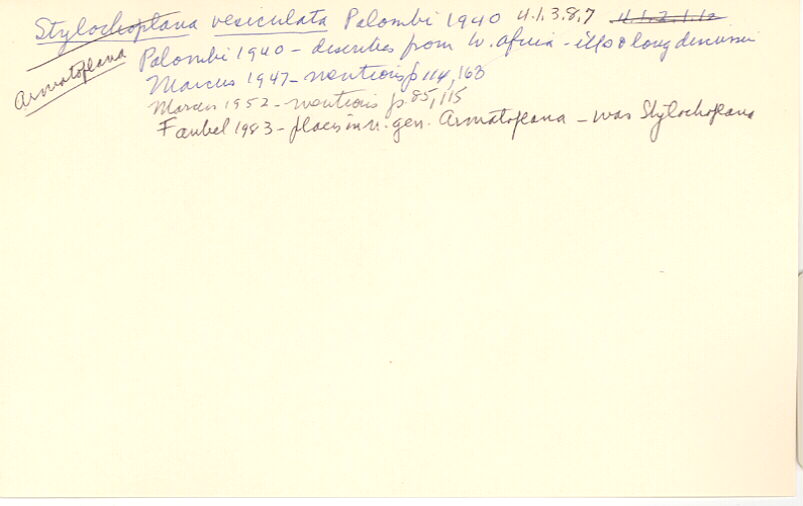 Stylochoplana vesiculata Palombi 1940 4.1.3.8.7 4.1.2.1.12
Armatoplana
Palombi 1940 - describes from W. Africa - illus & long discussion
Marcus 1947 - mentions p 114, 163
Marcus 1952 - mentions p. 85, 115
Faubel 1983 - places in n. gen. Armatoplana - was Stylochoplana